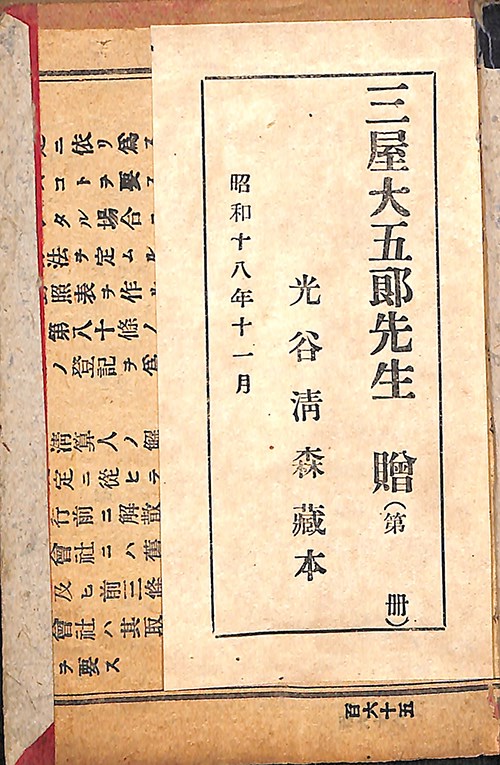 三屋大五郎先生 贈(第 冊)
光谷清森藏本
昭和十八年十一月
ニ依リ為ス
コトヲ要ス
タル場合ニ
法ヲ定ムル
照表ヲ作ル
第八十條ノ
ノ登記ヲ為
淸算人ノ解
定ニ從ヒテ
行前ニ解散
會社ニハ舊
及ヒ前三條
會社ハ其取
ヲ要ス
百六十五